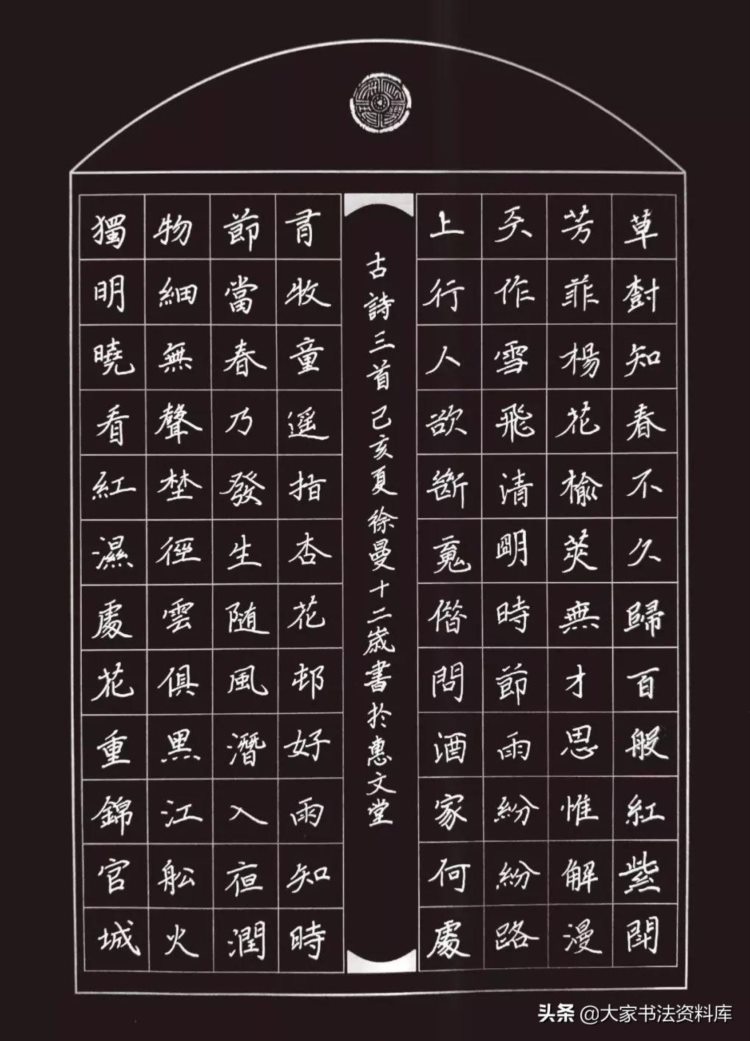 草樹知春不久歸百般紅紫鬥
芳菲楊花榆莢無才思惟解漫
天作雪飛清明時節雨紛紛路
上行人欲斷魂借問酒家何處
古詩三首己亥夏徐曼十二歲書於惠文堂
有牧童遥指杏花邨好雨知時
節當春乃發生随風潛入夜潤
物細無聲埜徑雲俱黑江舩火
獨明曉看紅濕處花重錦官城
头条 @大家书法资料库